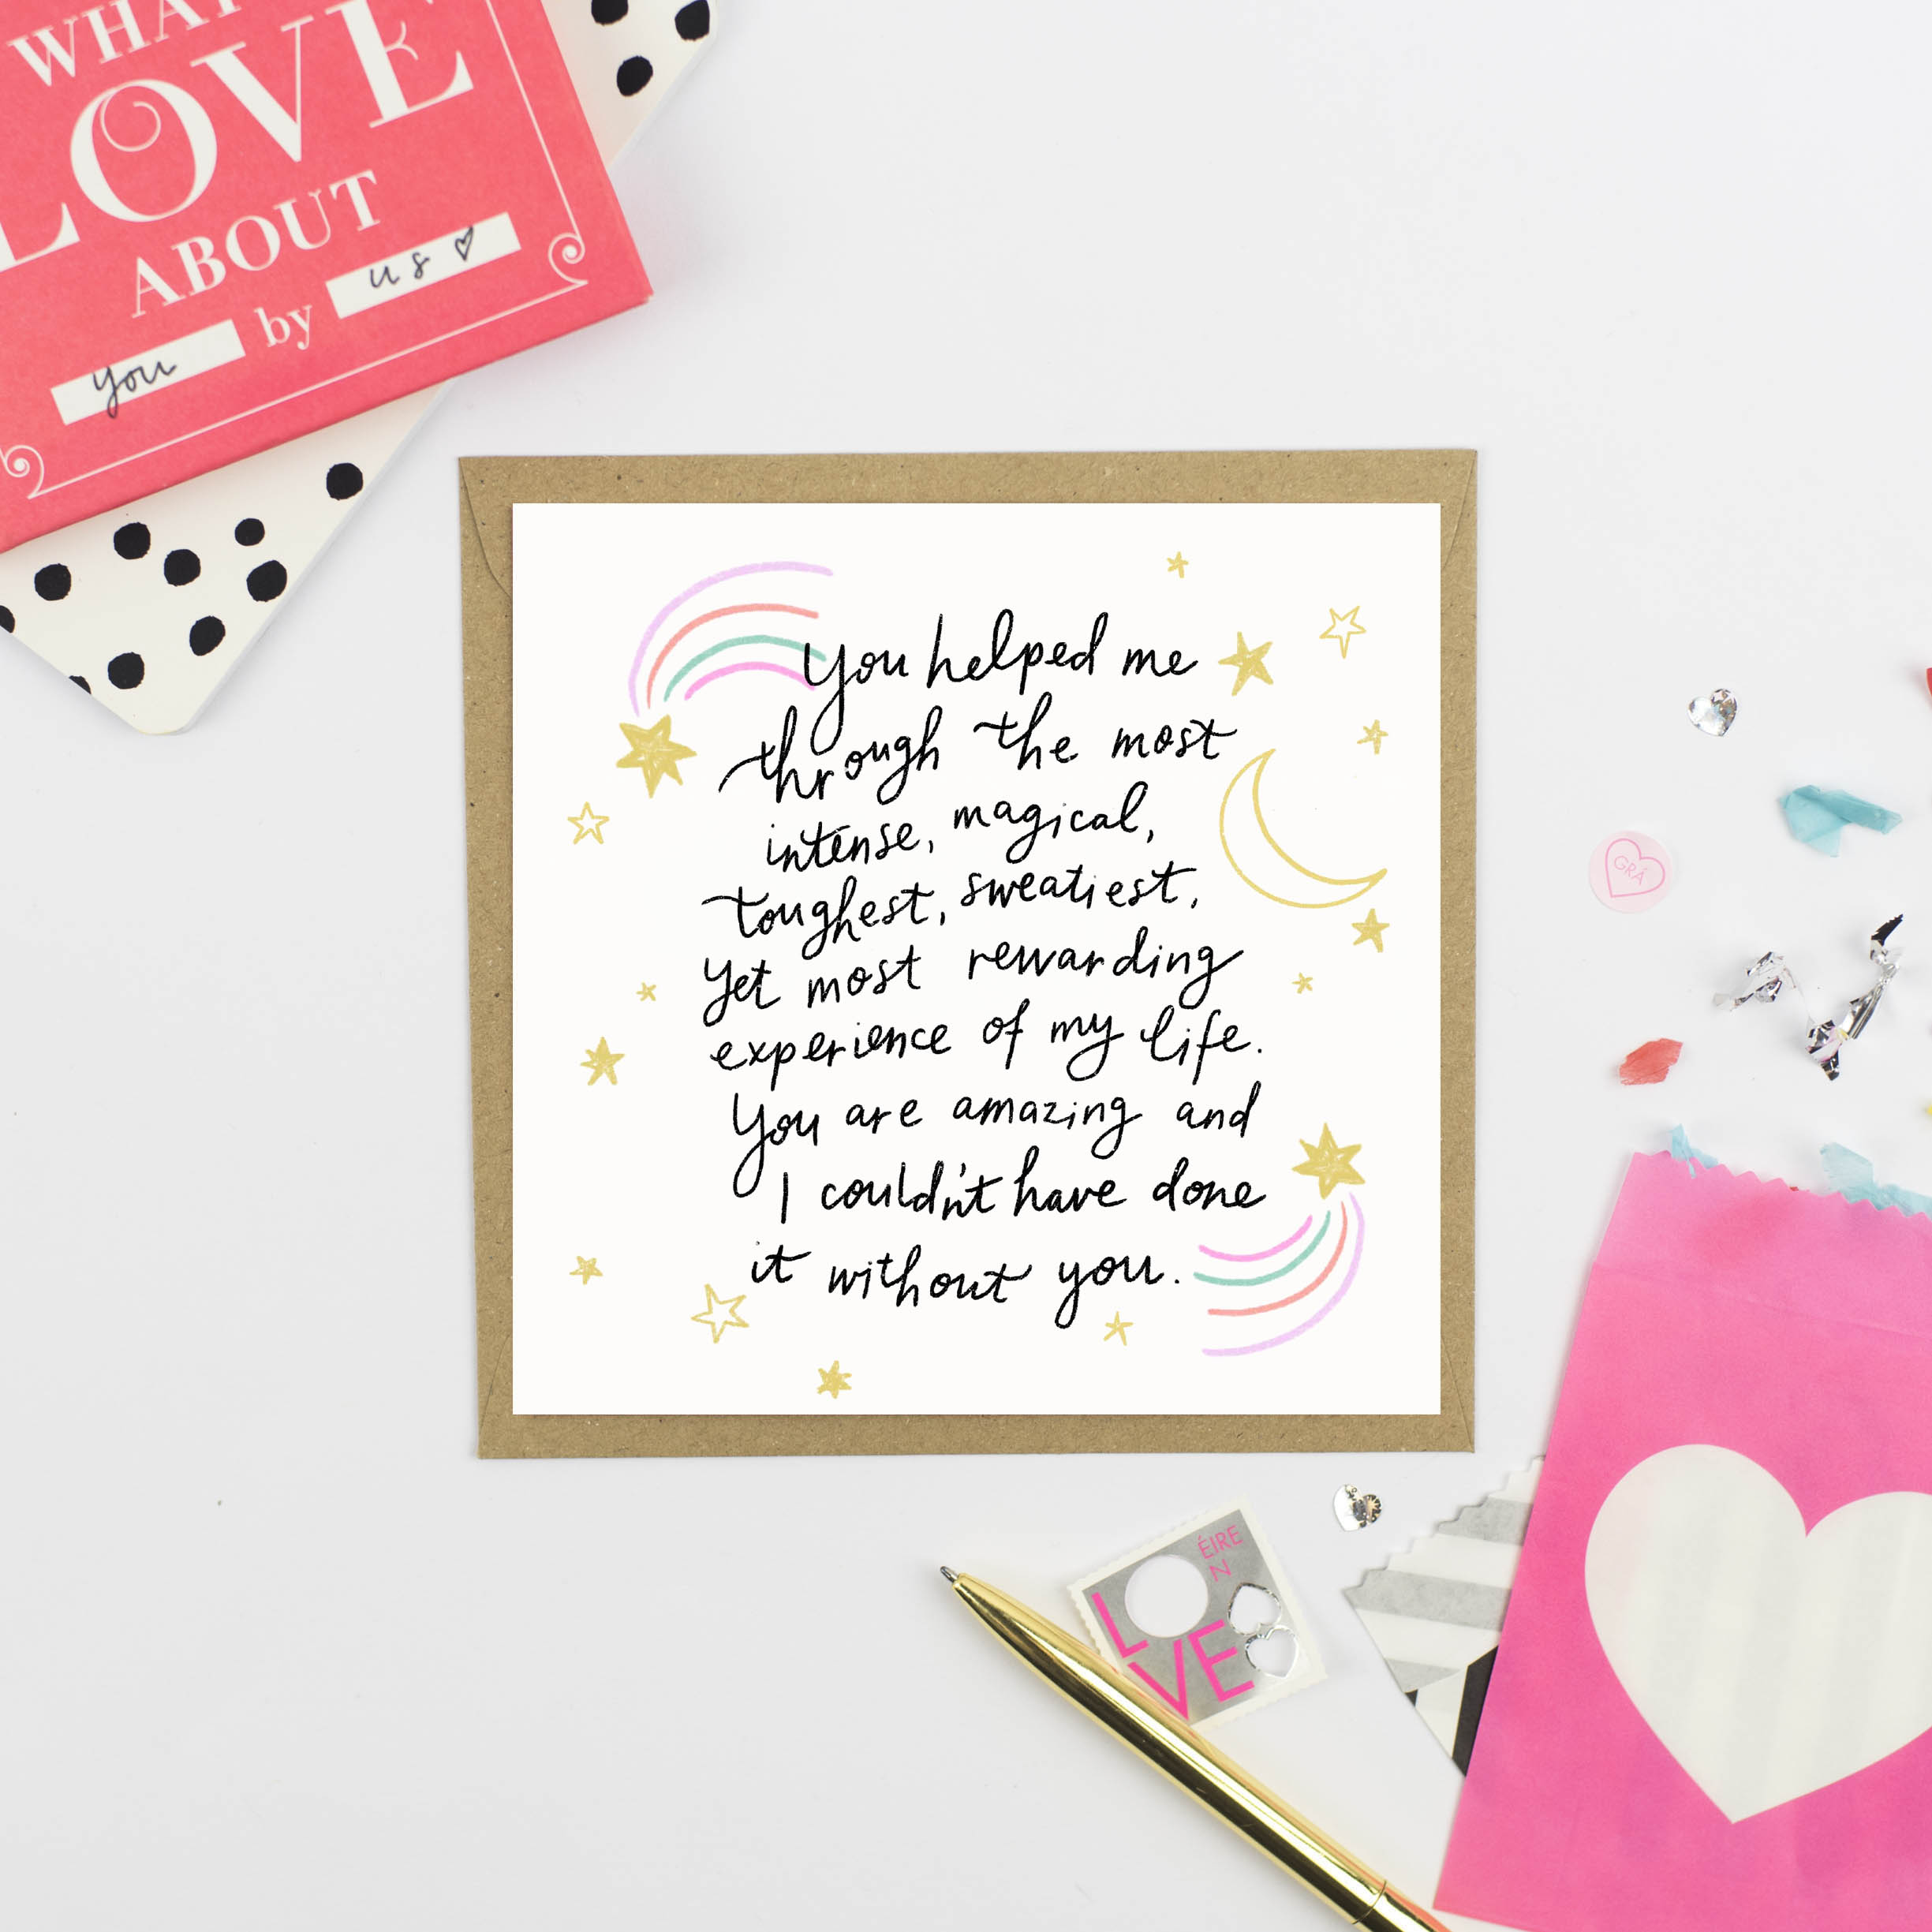 WHAT
LOVE
ABOUT
you by us
You helped me
through the most
intense, magical,
toughest, sweatiest,
yet most rewarding
experience of my life.
You are amazing and
I couldn't have done
it without you.
GRÁ
ÉIRE
N
LOVE